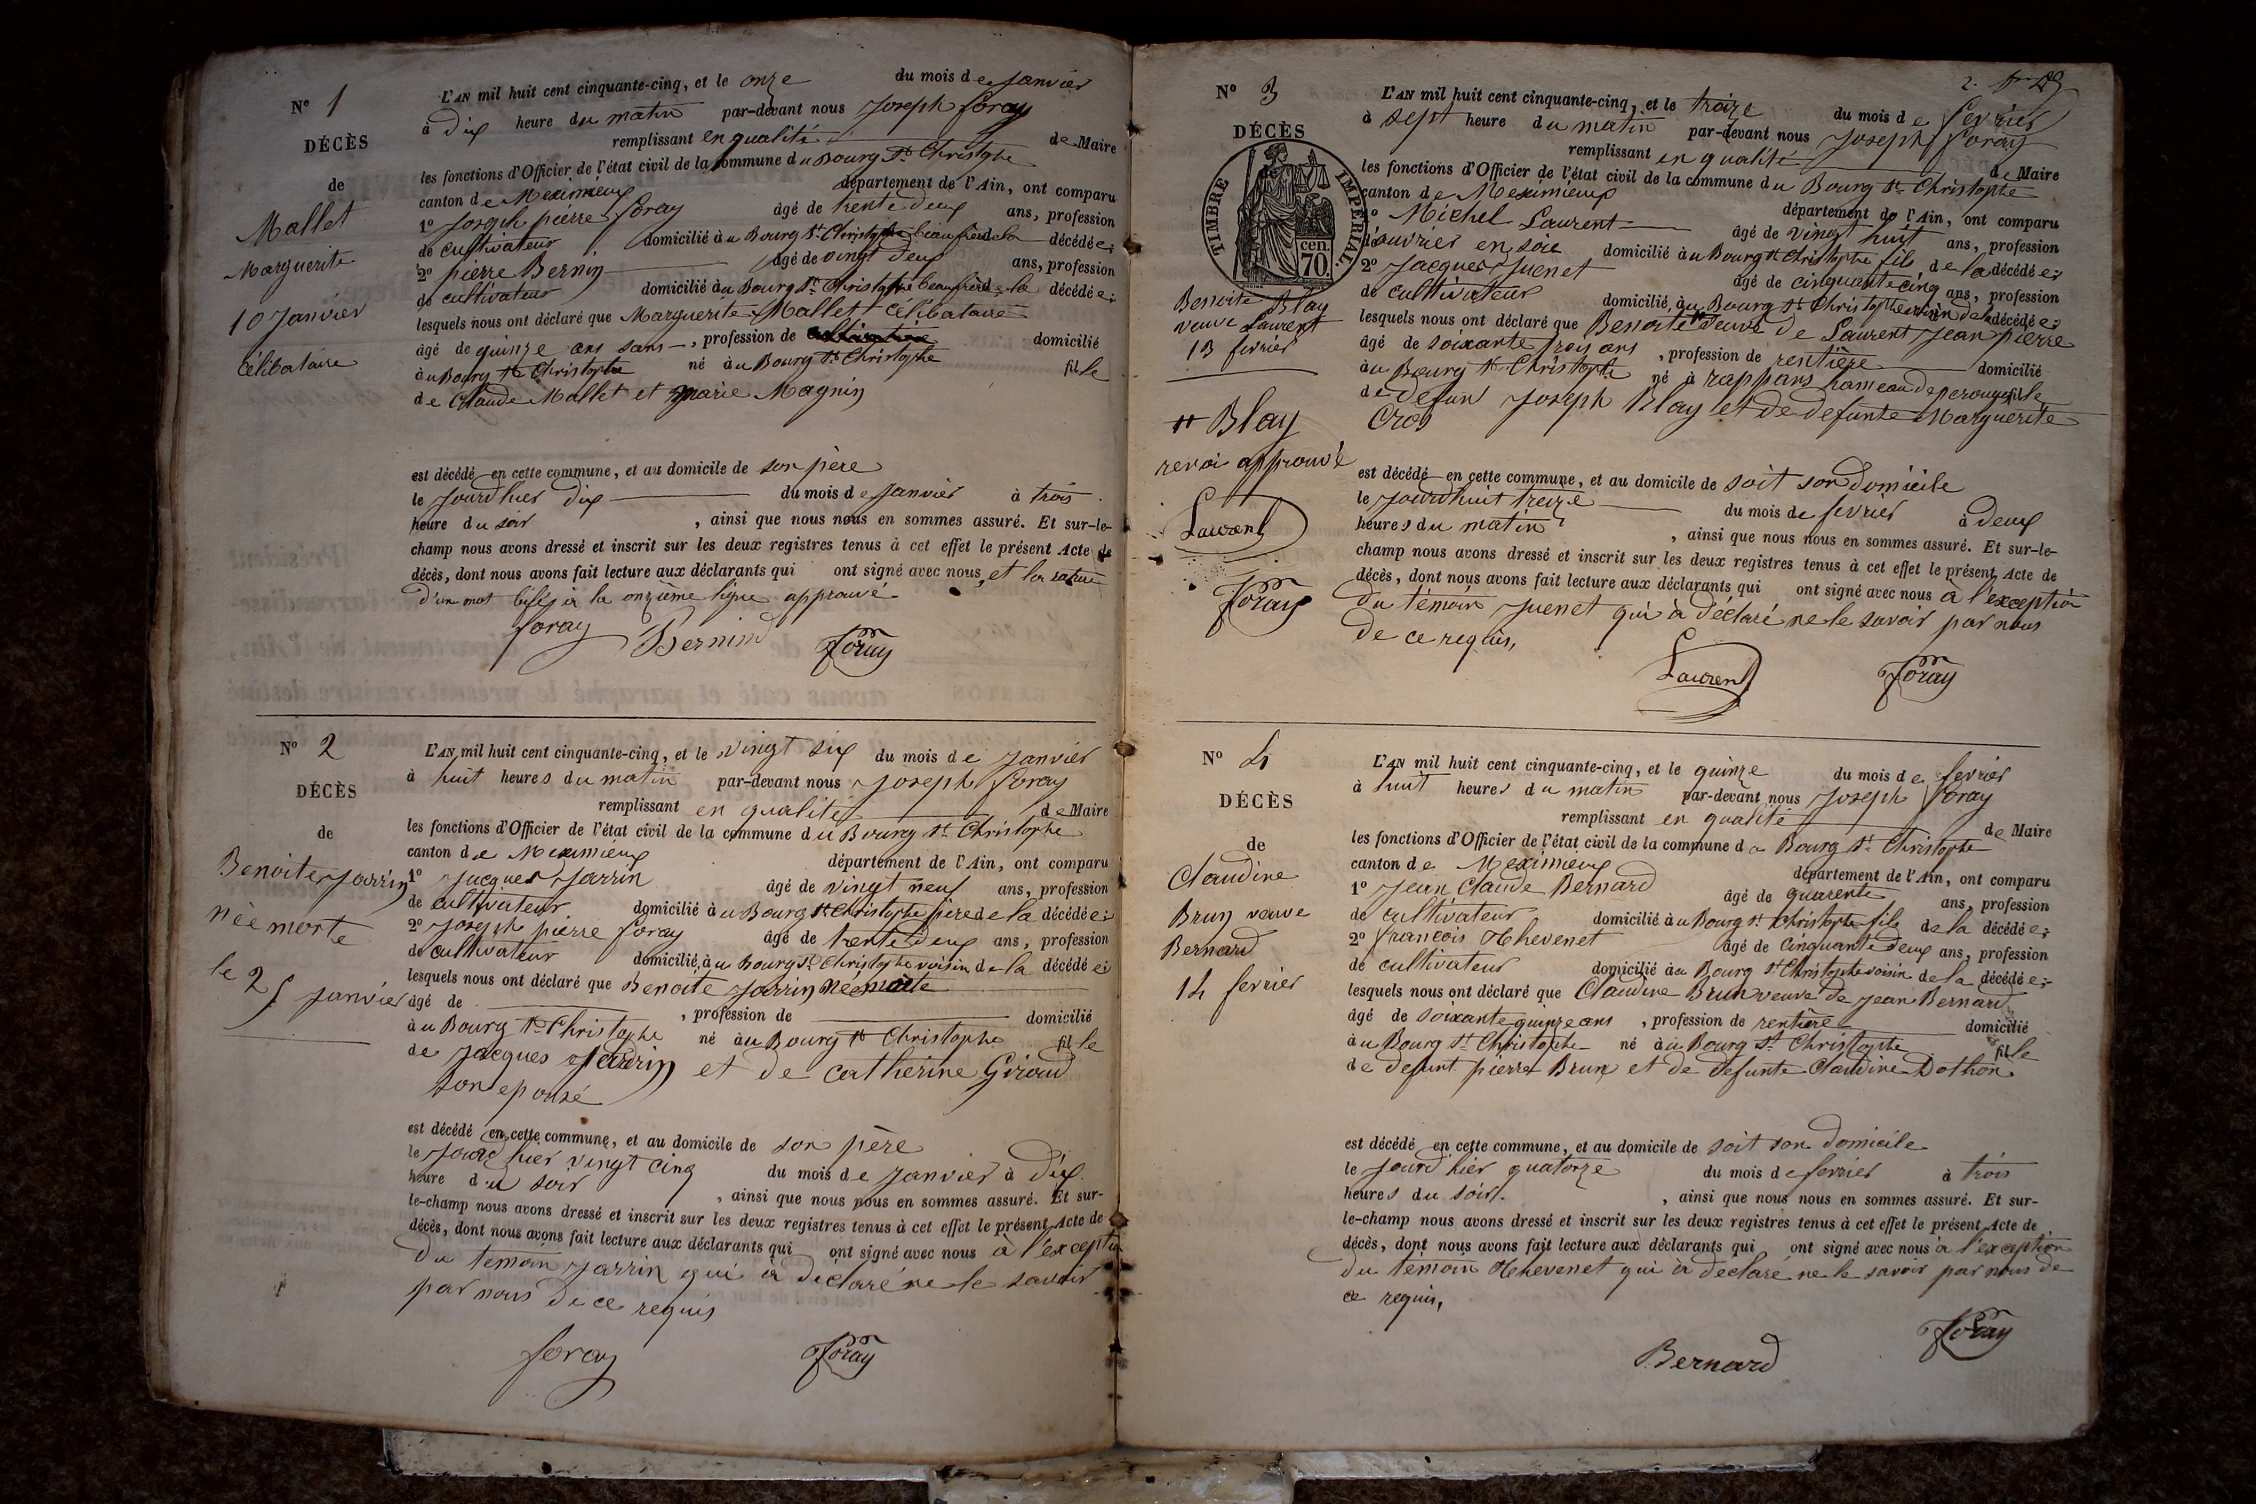 N° 1
DÉCÈS
de
Mallet
Marguerite
10 Janvier
Célibataire
L'AN mil huit cent cinquante-cinq, et le onze du mois de Janvier
à dix heure du matin par-devant nous Joseph foray
remplissant en qualité de Maire
les fonctions d'Officier de l'état civil de la commune du Bourg St Christophe
canton de Meximieux département de l'Ain, ont comparu
1° Joseph pierre foray âgé de trente deux ans, profession
de cultivateur domicilié àu Bourg St Christophe beaufrère de la décédée;
2° pierre Bernin âgé de vingt deux ans, profession
de cultivateur domicilié àu Bourg St Christophe beaufrère de la décédée;
lesquels nous ont déclaré que Marguerite Mallet Célibataire
âgé de quinze ans sans , profession de domicilié
àu Bourg St Christophe né àu Bourg St Christophe fille
de Claude Mallet et Marie Magnin
est décédé en cette commune, et au domicile de son père
le Jourd'hier dix du mois de Janvier à trois
heure du soir , ainsi que nous nous en sommes assuré. Et sur-le-
champ nous avons dressé et inscrit sur les deux registres tenus à cet effet le présent Acte de
décès, dont nous avons fait lecture aux déclarants qui ont signé avec nous, et la rature
d'un mot bifés à la onzième ligne approuvé
foray Bernin Foray
N° 2
DÉCÈS
de
Benoite Jarrin
née morte
le 25 janvier
L'AN mil huit cent cinquante-cinq, et le vingt six du mois de Janvier
à huit heures du matin par-devant nous Joseph foray
remplissant en qualité de Maire
les fonctions d'Officier de l'état civil de la commune du Bourg St Christophe
canton de Meximieux département de l'Ain, ont comparu
1° Jacques Jarrin âgé de vingt neuf ans, profession
de cultivateur domicilié àu Bourg St Christophe père de la décédée;
2° Joseph pierre foray âgé de trente deux ans, profession
de cultivateur domicilié àu Bourg St Christophe voisin de la décédée;
lesquels nous ont déclaré que Benoite Jarrin née morte
âgé de , profession de domicilié
àu Bourg St Christophe né àu Bourg St Christophe fille
de Jacques Jarrin et de Catherine Giroud
son epouse
est décédé en cette commune, et au domicile de son père
le Jourd'hier vingt cinq du mois de Janvier à dix
heure du soir , ainsi que nous nous en sommes assuré. Et sur-
le-champ nous avons dressé et inscrit sur les deux registres tenus à cet effet le présent Acte de
décès, dont nous avons fait lecture aux déclarants qui ont signé avec nous à l'exception
du temoin Jarrin qui à déclaré ne le savoir
par nous de ce requis
foray Foray
2.
N° 3
DÉCÈS
TIMBRE IMPÉRIAL
cen.
70.
Benoite Blay
veuve Laurent
13 fevrier
Blay
renvoi approuvé
Laurent
Foray
L'AN mil huit cent cinquante-cinq, et le treize du mois de fevrier
à sept heure du matin par-devant nous Joseph foray
remplissant en qualité de Maire
les fonctions d'Officier de l'état civil de la commune du Bourg St Christophe
canton de Meximieux département de l'Ain, ont comparu
1° Michel Laurent âgé de vingt huit ans, profession
d'ouvrier en soie domicilié àu Bourg St Christophe fils de la décédée;
2° Jacques Juenet âgé de cinquante cinq ans, profession
de cultivateur domicilié àu Bourg St Christophe voisin de la décédée;
lesquels nous ont déclaré que Benoite veuve de Laurent Jean pierre
âgé de soixante trois ans , profession de rentière domicilié
àu Bourg St Christophe né à rappans hameau de perouges fille
de defunt Joseph Blay et de defunte Marguerite
Cros
est décédé en cette commune, et au domicile de soit son domicile
le Jourd'huit treize du mois de fevrier à deux
heures du matin , ainsi que nous nous en sommes assuré. Et sur-le-
champ nous avons dressé et inscrit sur les deux registres tenus à cet effet le présent Acte de
décès, dont nous avons fait lecture aux déclarants qui ont signé avec nous à l'exception
du témoin Juenet qui à déclaré ne le savoir par nous
de ce requis,
Laurent Foray
N° 4
DÉCÈS
de
Claudine
Brun veuve
Bernard
14 fevrier
L'AN mil huit cent cinquante-cinq, et le quinze du mois de fevrier
à huit heures du matin par-devant nous Joseph foray
remplissant en qualité de Maire
les fonctions d'Officier de l'état civil de la commune du Bourg St Christophe
canton de Meximieux département de l'Ain, ont comparu
1° Jean Claude Bernard âgé de quarente ans, profession
de cultivateur domicilié àu Bourg St Christophe fils de la décédée;
2° francois Thevenet âgé de Cinquante deux ans, profession
de cultivateur domicilié àu Bourg St Christophe voisin de la décédée;
lesquels nous ont déclaré que Claudine Brun veuve de Jean Bernard
âgé de soixante quinze ans , profession de rentière domicilié
àu Bourg St Christophe né àu Bourg St Christophe fille
de defunt pierre Brun et de defunte Claudine Dothon
est décédé en cette commune, et au domicile de soit son domicile
le jourd'hier quatorze du mois de fevrier à trois
heures du soir. , ainsi que nous nous en sommes assuré. Et sur-
le-champ nous avons dressé et inscrit sur les deux registres tenus à cet effet le présent Acte de
décès, dont nous avons fait lecture aux déclarants qui ont signé avec nous à l'exception
du témoin Thevenet qui à déclaré ne le savoir par nous de
ce requis,
Bernard Foray